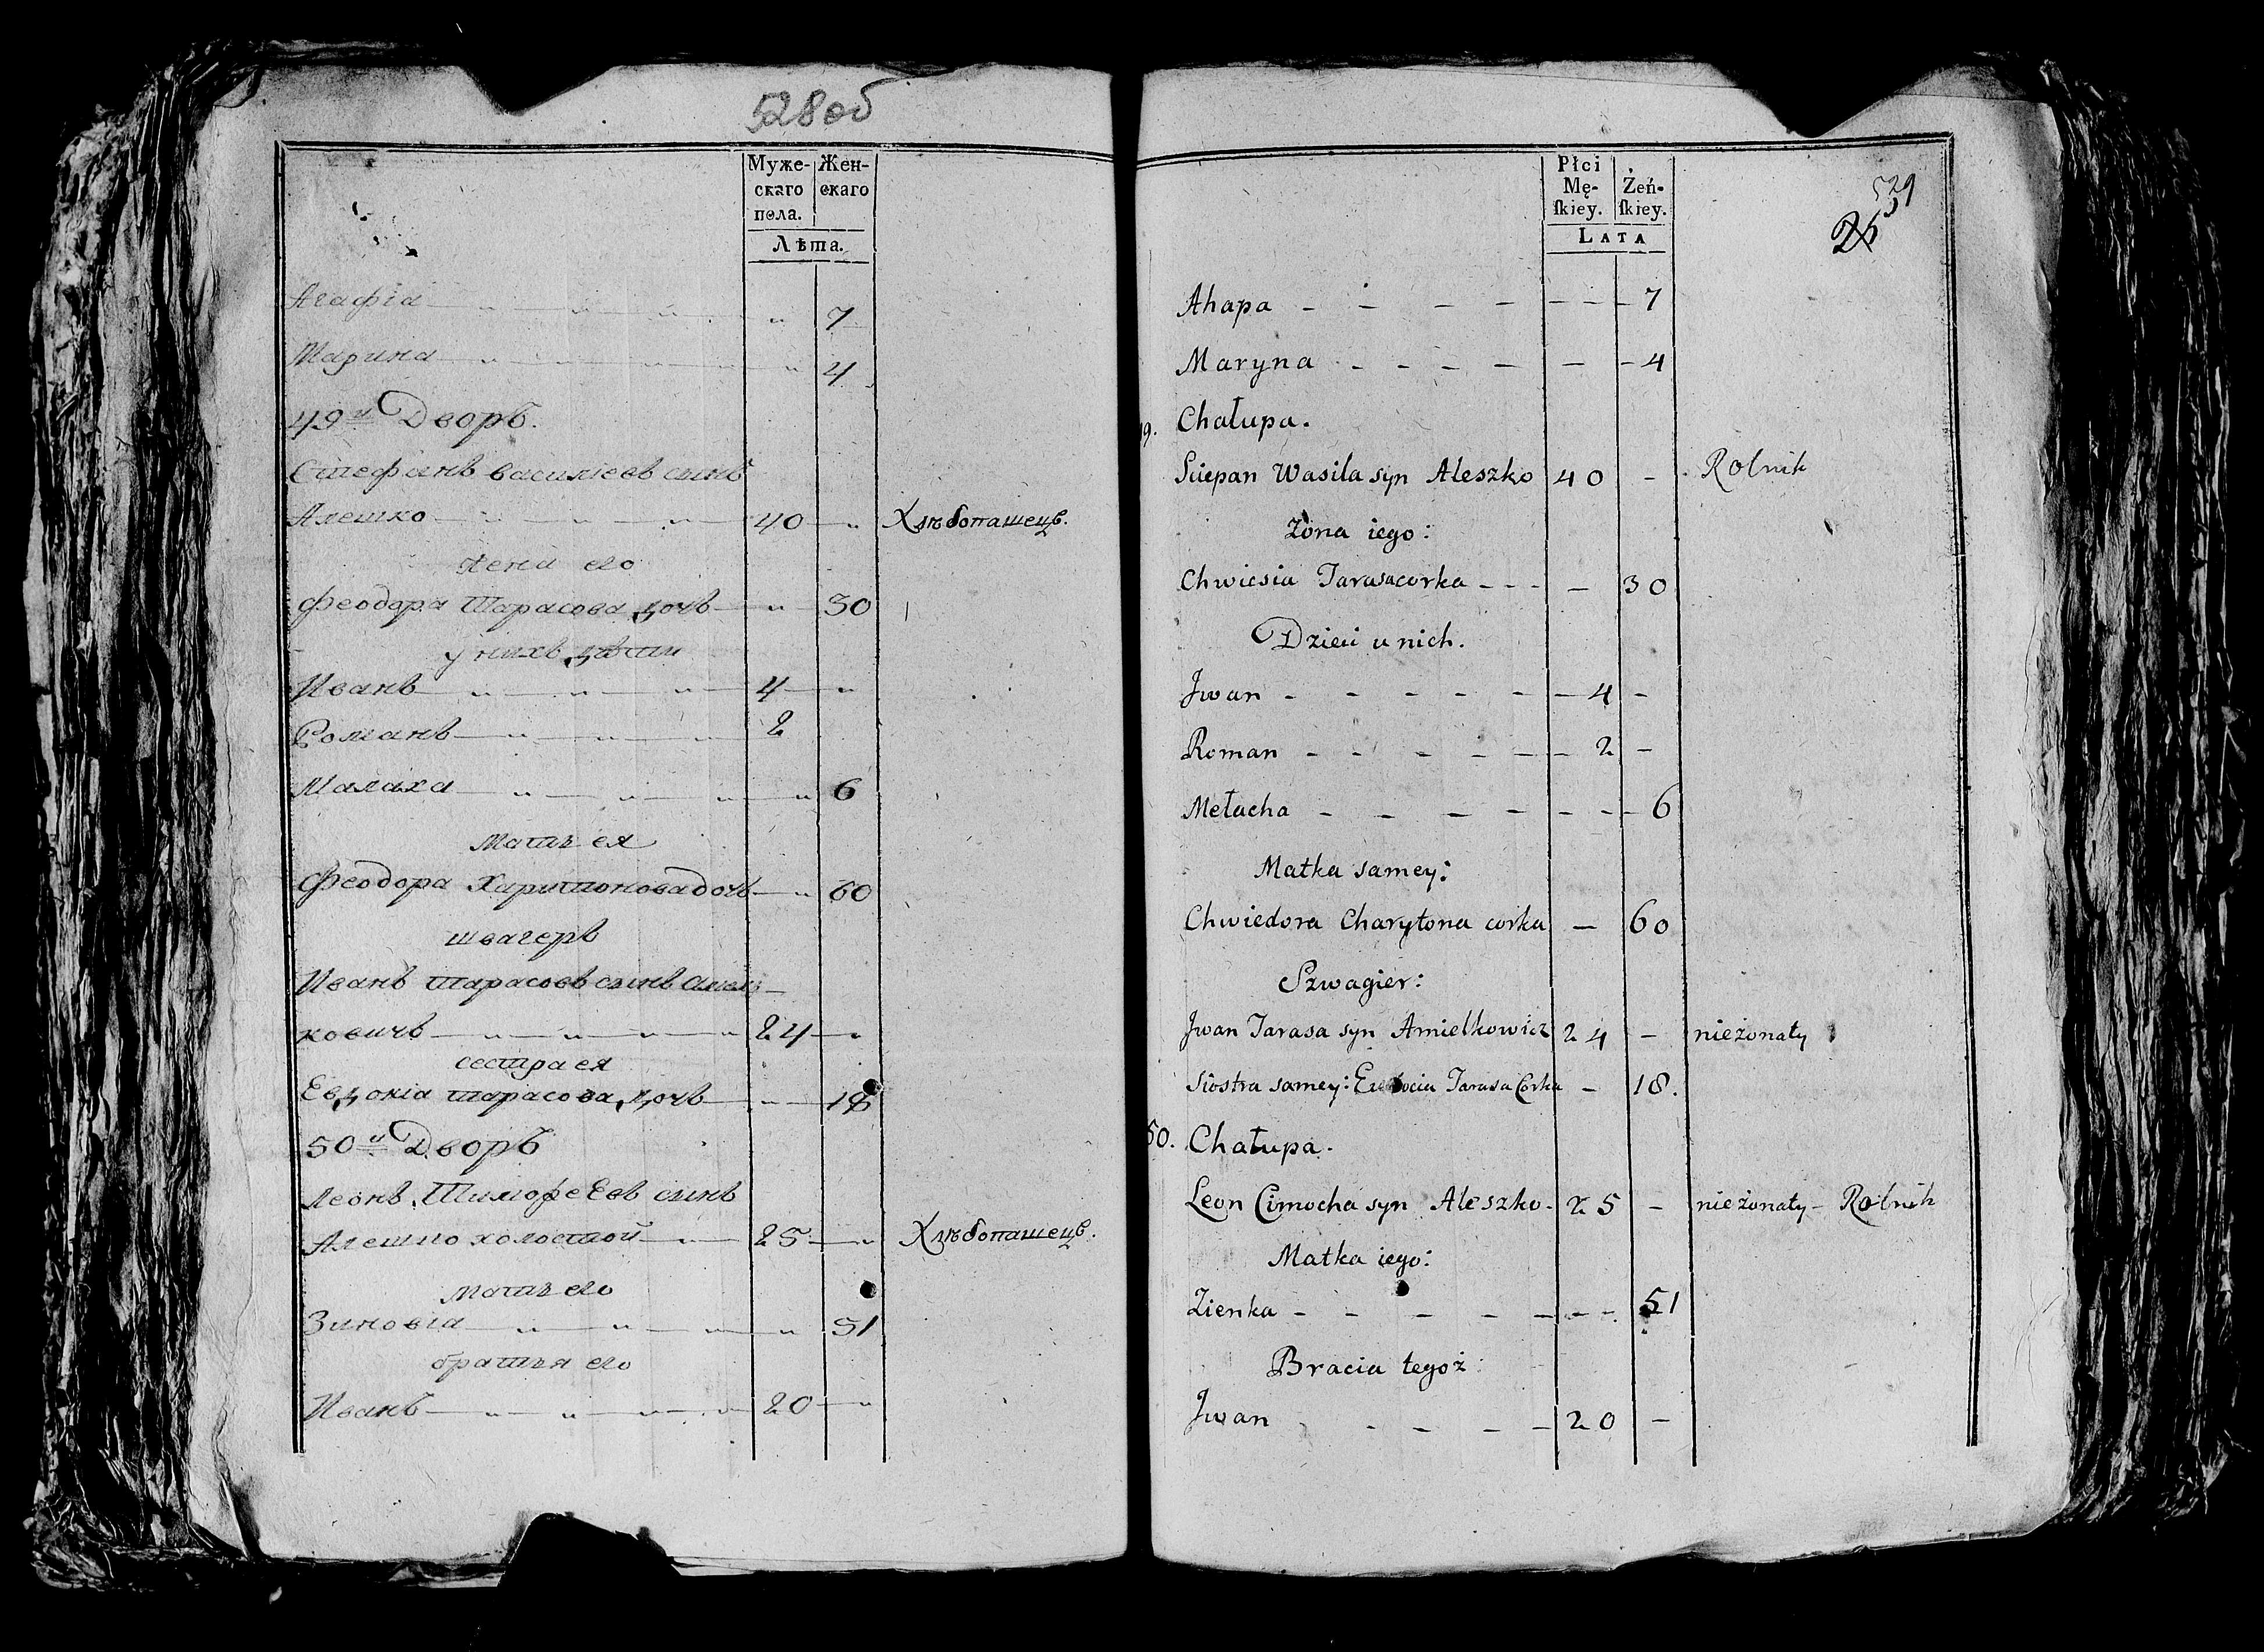 528об
Муже-
скаго
пола.
Жен-
скаго
Лѣта.
Агафіа 7
Марина 4
49й Дворъ.
Стефанъ василіевъ сынъ
Алешко 40 Хлѣбопашецъ.
жена его
Феодора Тарасова дочь 30
у нихъ дѣти
Иванъ 4
Романъ 2
Малаха 6
Мать ея
Феодора Харитонова дочь 60
швагеръ
Иванъ Тарасовъ сынъ Амель
ковичъ 24
сестра ея
Евдокіа тарасова дочь 18
50й Дворъ
Леонъ Тимофеевъ сынъ
Алешко холостой 25 Хлѣбопашецъ.
Мать его
Зиновіа 51
братья его
Иванъ 20
Płci
Mę-
ſkiey.
Żeń-
ſkiey.
LATA
529
Ahapa - - - - - - - 7
Maryna - - - - - - 4
49. Chałupa.
Sciepan Wasila syn Aleszko 40 - Rolnik
Żona iego:
Chwiesia Tarasa corka - - - - 30
Dzieci u nich.
Jwan - - - - - - 4 -
Roman - - - - - - 2 -
Mełacha - - - - - - - 6
Matka samey:
Chwiedora Charytona corka - 60
Szwagier:
Jwan Tarasa syn Amielkowicz 24 - nieżonaty
Siostra samey: Tarasa Corka - 18.
50. Chałupa.
Leon Cimocha syn Aleszko. 25 - nieżonaty - Rolnik
Matka iego:
Zienka - - - - - - - 51
Bracia tegoż:
Jwan - - - - 20 -